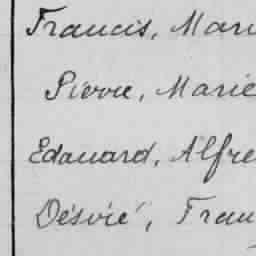 Francis, Mari
Pierre, Marie
Edouard, Alfre
Désiré, Fran